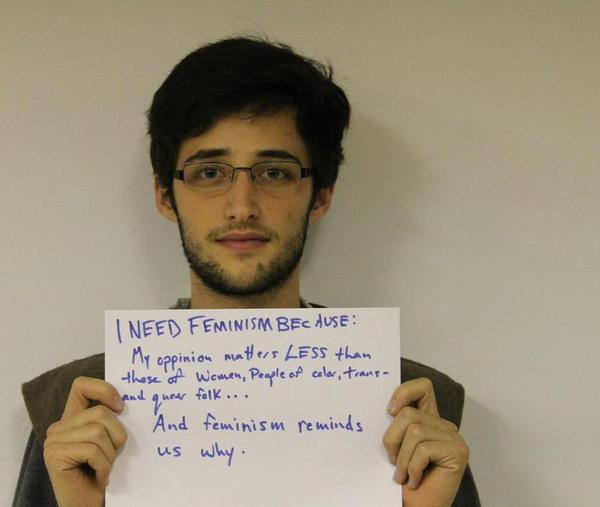 I NEED FEMINISM BECAUSE:
My oppinion matters LESS than
those of Women, People of color, trans-
and queer folk...
And feminism reminds
us why.